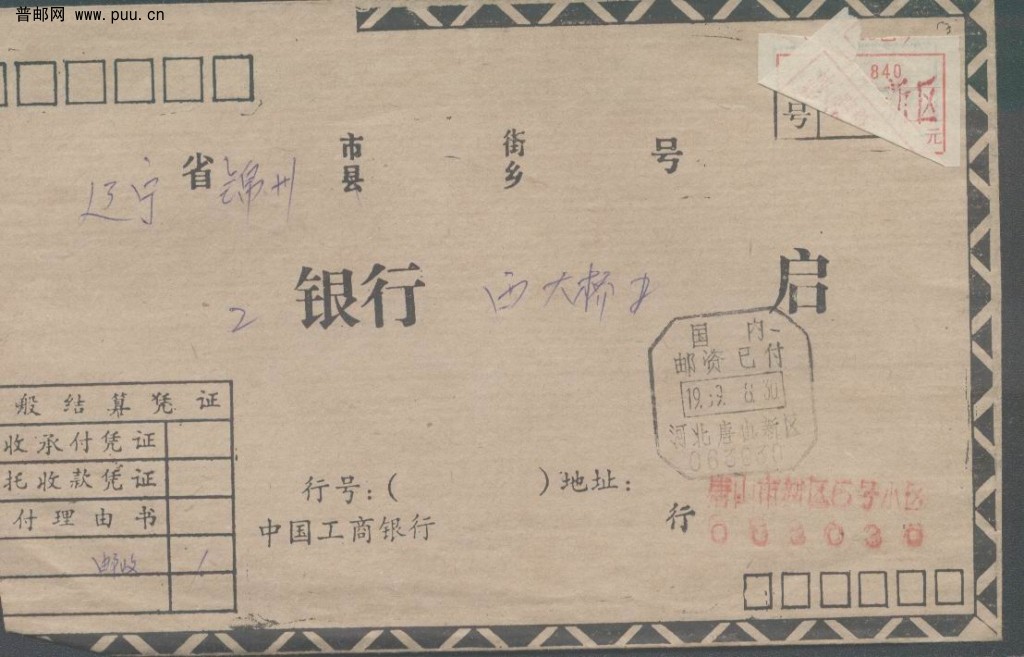 普邮网 www.puu.cn
840
号 区
元
辽宁 省 锦州 市县 街乡 号
银行 西大桥 启
国内
邮资已付
河北唐山新区
般结算凭证
收承付凭证
托收款凭证
付理由书
邮收 1
行号：（ ）地址：
中国工商银行 行
唐山市新区6号小区
063030